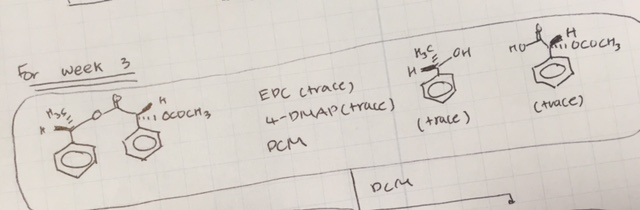 For week 3
H₃C
H
O
O
H
OCOCH₃
EDC (trace)
4-DMAP (trace)
DCM
H₃C
OH
H
(trace)
HO
O
H
OCOCH₃
(trace)
DCM